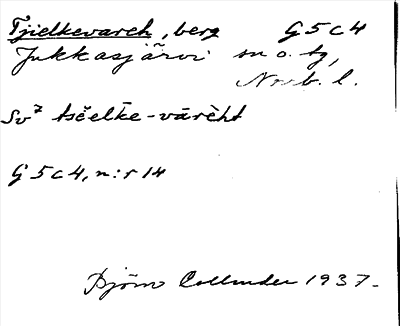 Tjielkevarch, berg G5c4
Jukkasjärvi sn o. tg,
Norrb. l.
Sv⁷ tsčelke-vārèht
G5c4, n:r 14
Björn Collinder 1937.